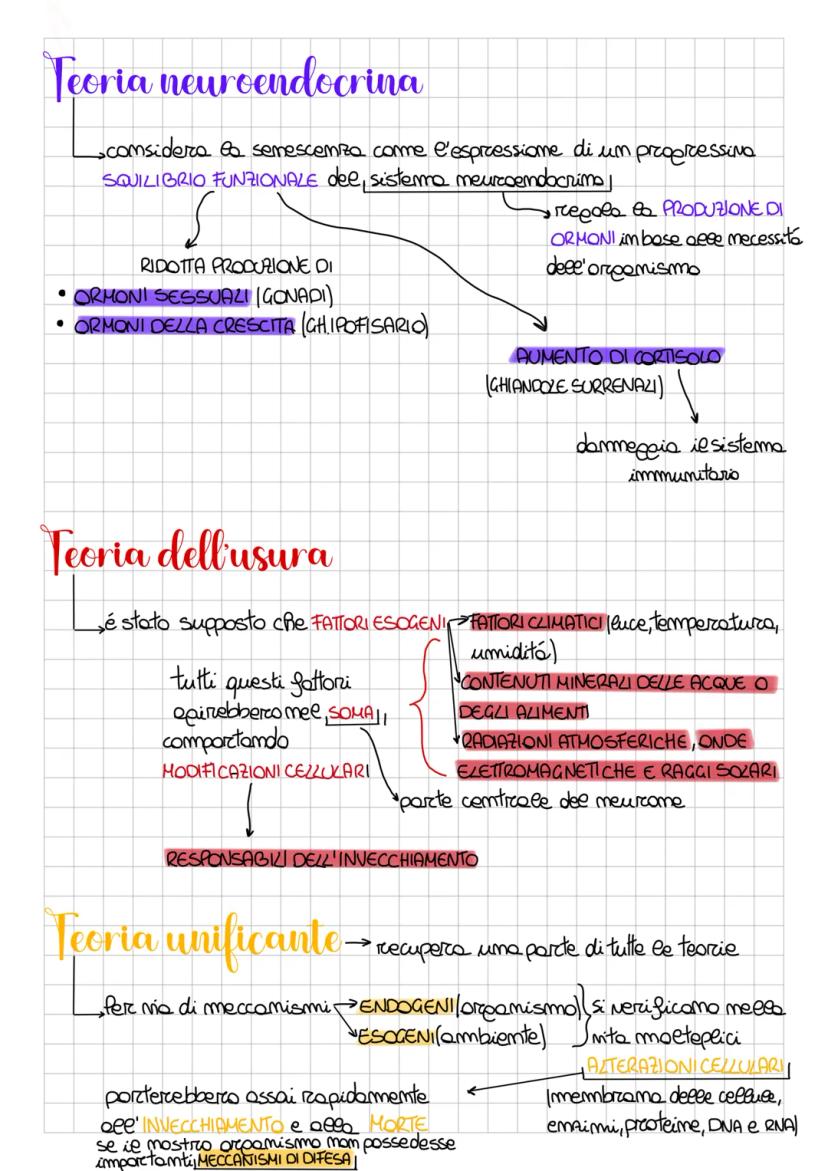 Teoria neuroendocrina
considera la senescenza come l'espressione di un progressivo
SQUILIBRIO FUNZIONALE del sistema neuroendocrino
regola la PRODUZIONE DI
ORMONI in base alle necessità
dell'organismo
RIDOTTA PRODUZIONE DI
• ORMONI SESSUALI (GONADI)
• ORMONI DELLA CRESCITA (GH.IPOFISARIO)
AUMENTO DI CORTISOLO
(GHIANDOLE SURRENALI)
danneggia il sistema
immunitario
Teoria dell'usura
é stato supposto che FATTORI ESOGENI
FATTORI CLIMATICI (luce, temperatura,
umiditá)
CONTENUTI MINERALI DELLE ACQUE O
DEGLI ALIMENTI
RADIAZIONI ATMOSFERICHE, ONDE
ELETTROMAGNETICHE E RAGGI SOLARI
tutti questi fattori
agirebbero nel SOMA,
comportando
MODIFICAZIONI CELLULARI
parte centrale del neurone
RESPONSABILI DELL'INVECCHIAMENTO
Teoria unificante → recupera una parte di tutte le teorie
Per via di meccanismi
ENDOGENI (organismo)
ESOGENI (ambiente)
si verificano nella
vita molteplici
ALTERAZIONI CELLULARI
(membrana delle cellule,
enzimi, proteine, DNA e RNA)
porterebbero assai rapidamente
all'INVECCHIAMENTO e alla MORTE
se il nostro organismo non possedesse
importanti MECCANISMI DI DIFESA